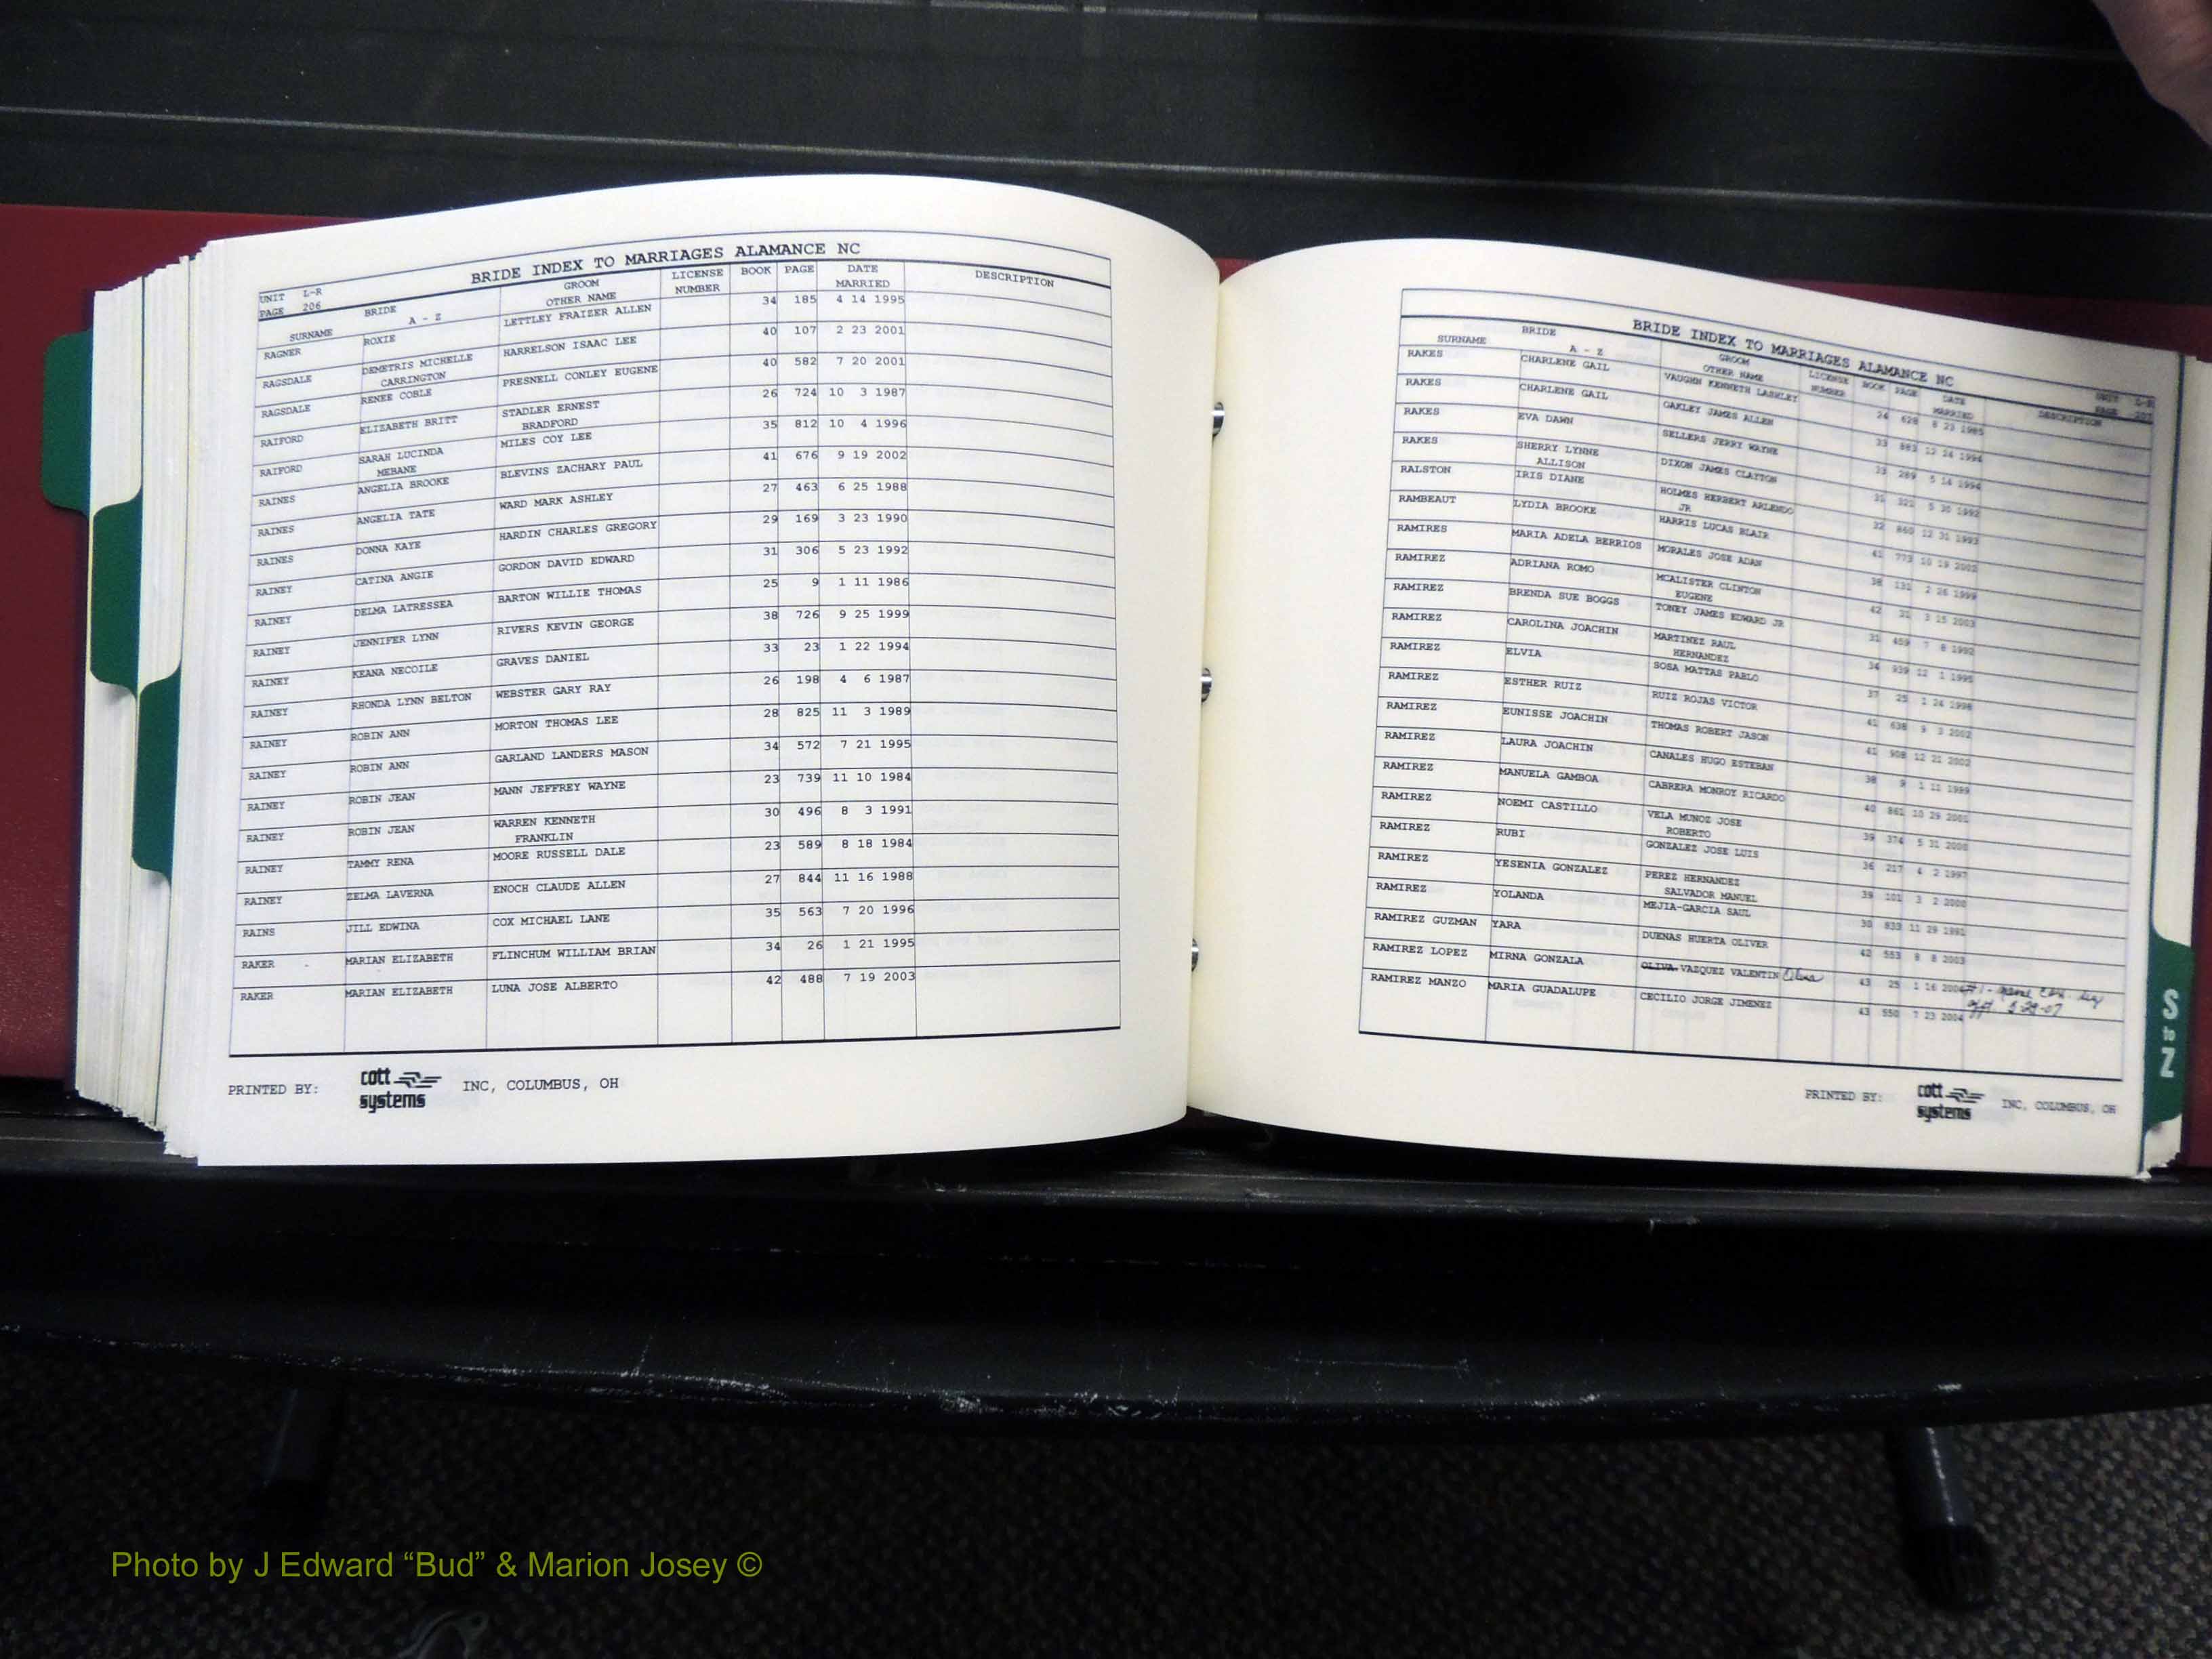 BRIDE INDEX TO MARRIAGES ALAMANCE NC
UNIT L-R
PAGE 206
SURNAME BRIDE A - Z GROOM OTHER NAME LICENSE NUMBER BOOK PAGE DATE MARRIED DESCRIPTION
RAGNER ROXIE LETTLEY FRAIZER ALLEN 34 185 4 14 1995
RAGSDALE DEMETRIS MICHELLE HARRELSON ISAAC LEE 40 107 2 23 2001
CARRINGTON
RAGSDALE RENEE COBLE PRESNELL CONLEY EUGENE 40 582 7 20 2001
RAIFORD ELIZABETH BRITT STADLER ERNEST 26 724 10 3 1987
BRADFORD
RAIFORD SARAH LUCINDA MILES COY LEE 35 812 10 4 1996
MEBANE
RAINES ANGELIA BROOKE BLEVINS ZACHARY PAUL 41 676 9 19 2002
RAINES ANGELIA TATE WARD MARK ASHLEY 27 463 6 25 1988
RAINES DONNA KAYE HARDIN CHARLES GREGORY 29 169 3 23 1990
RAINEY CATINA ANGIE GORDON DAVID EDWARD 31 306 5 23 1992
RAINEY DELMA LATRESSEA BARTON WILLIE THOMAS 25 9 1 11 1986
RAINEY JENNIFER LYNN RIVERS KEVIN GEORGE 38 726 9 25 1999
RAINEY KEANA NECOILE GRAVES DANIEL 33 23 1 22 1994
RAINEY RHONDA LYNN BELTON WEBSTER GARY RAY 26 198 4 6 1987
RAINEY ROBIN ANN MORTON THOMAS LEE 28 825 11 3 1989
RAINEY ROBIN ANN GARLAND LANDERS MASON 34 572 7 21 1995
RAINEY ROBIN JEAN MANN JEFFREY WAYNE 23 739 11 10 1984
RAINEY ROBIN JEAN WARREN KENNETH 30 496 8 3 1991
FRANKLIN
RAINEY TAMMY RENA MOORE RUSSELL DALE 23 589 8 18 1984
RAINEY ZELMA LAVERNA ENOCH CLAUDE ALLEN 27 844 11 16 1988
RAINS JILL EDWINA COX MICHAEL LANE 35 563 7 20 1996
RAKER MARIAN ELIZABETH FLINCHUM WILLIAM BRIAN 34 26 1 21 1995
RAKER MARIAN ELIZABETH LUNA JOSE ALBERTO 42 488 7 19 2003
PRINTED BY: cott systems INC, COLUMBUS, OH
BRIDE INDEX TO MARRIAGES ALAMANCE NC
UNIT L-R
PAGE 207
SURNAME BRIDE A - Z GROOM OTHER NAME LICENSE NUMBER BOOK PAGE DATE MARRIED DESCRIPTION
RAKES CHARLENE GAIL VAUGHN KENNETH LASHLEY 24 628 8 23 1985
RAKES CHARLENE GAIL OAKLEY JAMES ALLEN 33 883 12 24 1994
RAKES EVA DAWN SELLERS JERRY WAYNE 33 289 5 14 1994
RAKES SHERRY LYNNE DIXON JAMES CLAYTON 31 321 5 30 1992
ALLISON
RALSTON IRIS DIANE HOLMES HERBERT ARLENDO 32 860 12 31 1993
JR
RAMBEAUT LYDIA BROOKE HARRIS LUCAS BLAIR 41 773 10 19 2002
RAMIRES MARIA ADELA BERRIOS MORALES JOSE ADAN 38 131 2 26 1999
RAMIREZ ADRIANA ROMO MCALISTER CLINTON 42 31 3 15 2003
EUGENE
RAMIREZ BRENDA SUE BOGGS TONEY JAMES EDWARD JR 31 459 7 8 1992
RAMIREZ CAROLINA JOACHIN MARTINEZ RAUL 34 939 12 1 1995
HERNANDEZ
RAMIREZ ELVIA SOSA MATTAS PABLO 37 25 1 24 1998
RAMIREZ ESTHER RUIZ RUIZ ROJAS VICTOR 41 638 9 3 2002
RAMIREZ EUNISSE JOACHIN THOMAS ROBERT JASON 41 908 12 21 2002
RAMIREZ LAURA JOACHIN CANALES HUGO ESTEBAN 38 9 1 11 1999
RAMIREZ MANUELA GAMBOA CABRERA MONROY RICARDO 40 861 10 29 2001
RAMIREZ NOEMI CASTILLO VELA MUNOZ JOSE 39 374 5 31 2000
ROBERTO
RAMIREZ RUBI GONZALEZ JOSE LUIS 36 217 4 2 1997
RAMIREZ YESENIA GONZALEZ PEREZ HERNANDEZ 39 101 3 2 2000
SALVADOR MANUEL
RAMIREZ YOLANDA MEJIA-GARCIA SAUL 30 833 11 29 1991
RAMIREZ GUZMAN YARA DUENAS HUERTA OLIVER 42 553 8 8 2003
RAMIREZ LOPEZ MIRNA GONZALA OLIVA VAZQUEZ VALENTIN 43 25 1 16 2004 #1- name
RAMIREZ MANZO MARIA GUADALUPE CECILIO JORGE JIMENEZ 43 550 7 23 2004
PRINTED BY: cott systems INC, COLUMBUS, OH
S to Z
Photo by J Edward “Bud” & Marion Josey ©